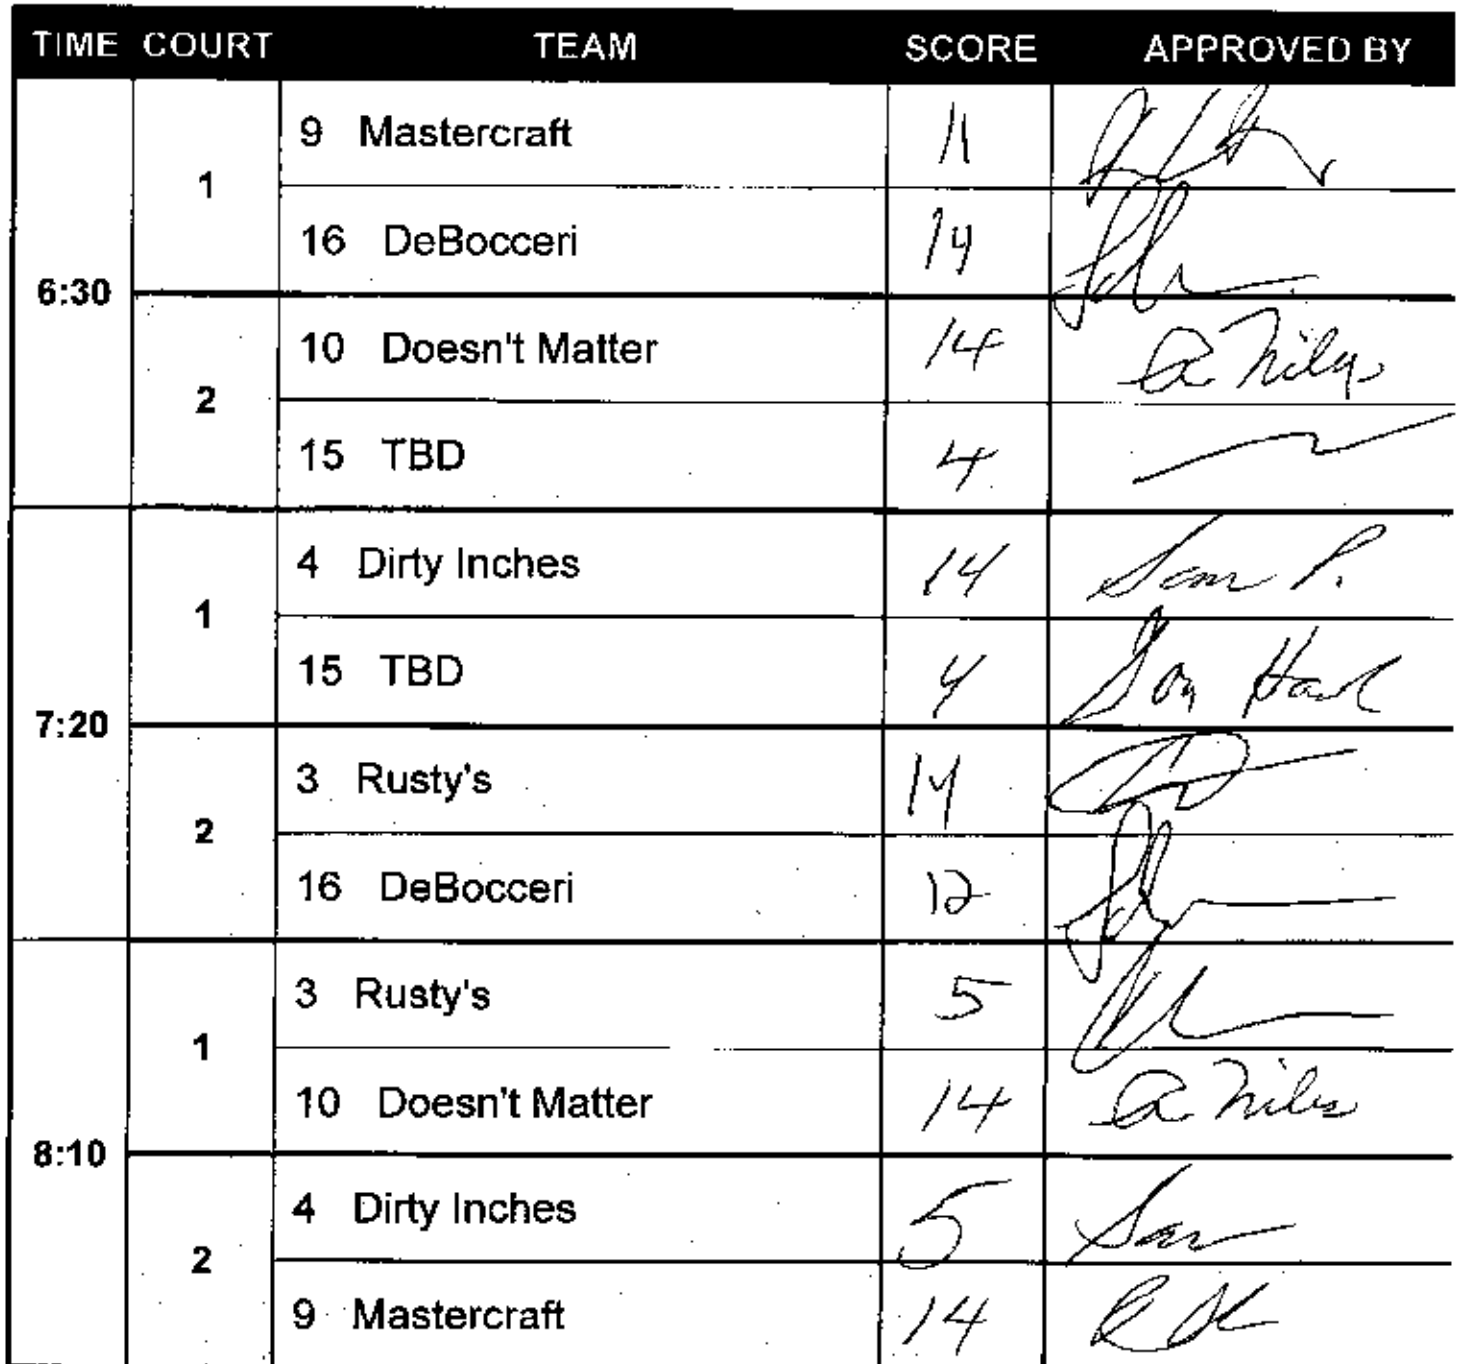 TIME COURT TEAM SCORE APPROVED BY
9 Mastercraft 11
1
16 DeBocceri 14
6:30
10 Doesn't Matter 14 a Niles
2
15 TBD 4
4 Dirty Inches 14 Sam P.
1
15 TBD 4
7:20
3 Rusty's 14
2
16 DeBocceri 12
3 Rusty's 5
1
10 Doesn't Matter 14 a Niles
8:10
4 Dirty Inches 5 Sam
2
9 Mastercraft 14